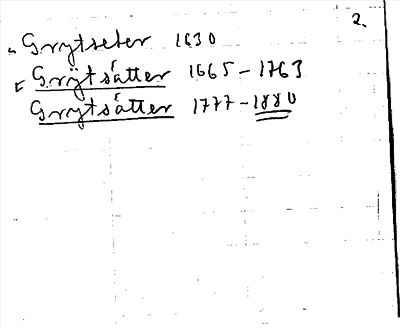 2.
Grytseter 1630
Grÿtsätter 1665-1763
Grytsätter 1777-1880